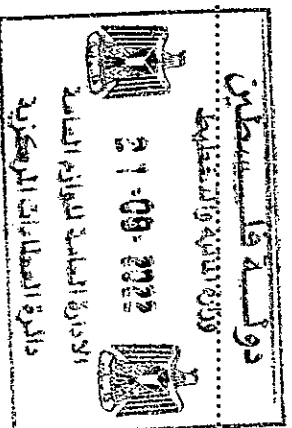 دولة فلسطين
وزارة المالية والتخطيط
21-09-2022
الإدارة العامة للوازم العامة
دائرة العطاءات المركزية